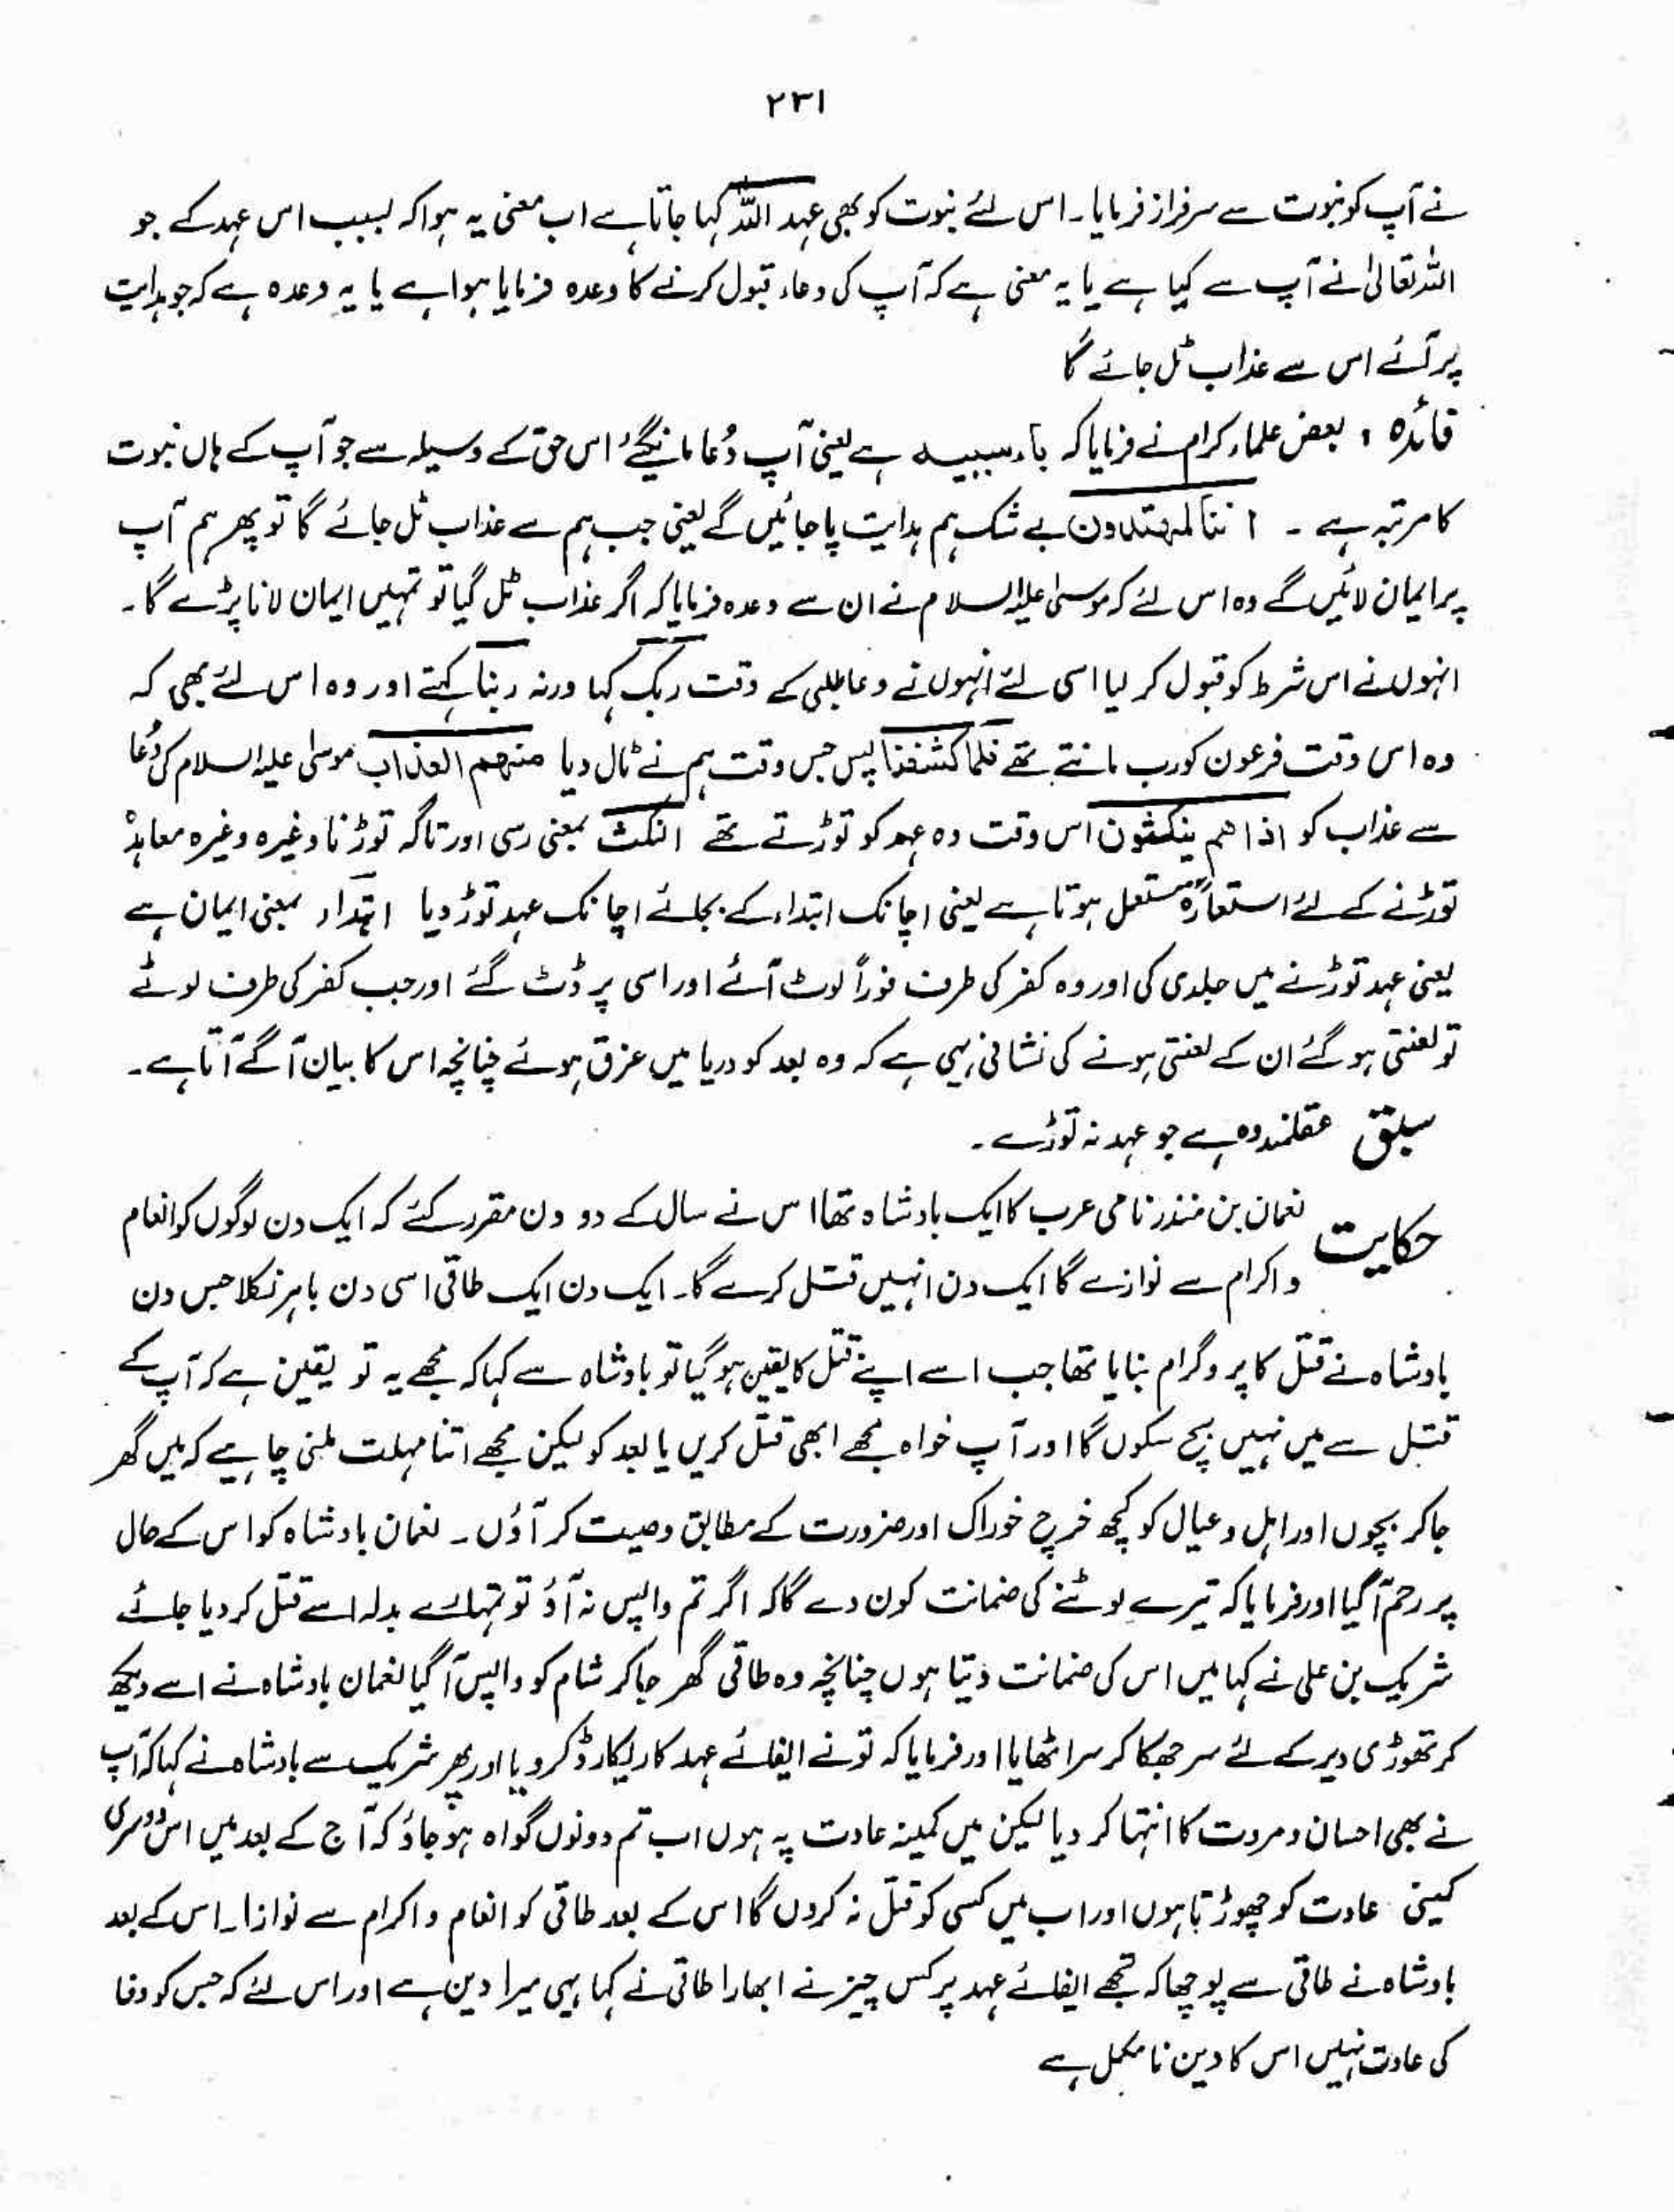 ۲۳۱
نے آپ کو نبوت سے سرفراز فرمایا۔ اس لئے نبوت کو بھی عہد اللہ کہا جاتا ہے اب معنی یہ ہوا کہ بسبب اس عہد کے جو
اللہ تعالیٰ نے آپ سے کیا ہے یا یہ معنی ہے کہ آپ کی دعاء قبول کرنے کا وعدہ فرمایا ہوا ہے یا یہ وعدہ ہے کہ جو ہدایت
پر آئے اس سے عذاب ٹل جائے گا
فائدہ : بعض علماء کرام نے فرمایا کہ باء سببیہ ہے یعنی آپ دُعا مانگیئے اس حق کے وسیلہ سے جو آپ کے ہاں نبوت
کا مرتبہ ہے ۔ اننا لمھتدون بے شک ہم ہدایت پا جائیں گے یعنی جب ہم سے عذاب ٹل جائے گا تو پھر ہم آپ
پر ایمان لائیں گے وہ اس لئے کہ موسیٰ علیہ السلام نے ان سے وعدہ فرمایا کہ اگر عذاب ٹل گیا تو تمہیں ایمان لانا پڑے گا۔
انہوں نے اس شرط کو قبول کر لیا اسی لئے انہوں نے دعا طلبی کے وقت ربک کہا ورنہ ربنا کہتے اور وہ اس لئے بھی کہ
وہ اس وقت فرعون کو رب مانتے تھے فلما کشفنا پس جس وقت ہم نے ٹال دیا منھم العذاب موسیٰ علیہ السلام کی دُعا
سے عذاب کو اذا ھم ینکثون اس وقت وہ عہد کو توڑتے تھے النکث بمعنی رسی اور تاگہ توڑنا وغیرہ وغیرہ معاہدہ
توڑنے کے لئے استعارۃً مستعمل ہوتا ہے یعنی اچانک ابتداء کے بجائے اچانک عہد توڑ دیا اہتداء بمعنی ایمان ہے
یعنی عہد توڑنے میں جلدی کی اور وہ کفر کی طرف فوراً لوٹ آئے اور اسی پر ڈٹ گئے اور جب کفر کی طرف لوٹے
تو لعنتی ہو گئے ان کے لعنتی ہونے کی نشانی یہی ہے کہ وہ بعد کو دریا میں غرق ہوئے چنانچہ اس کا بیان آگے آتا ہے۔
سبق عقلمند وہ ہے جو عہد نہ توڑے۔
حکایت نعمان بن منذر نامی عرب کا ایک بادشاہ تھا اس نے سال کے دو دن مقرر کئے کہ ایک دن لوگوں کو انعام
و اکرام سے نوازے گا ایک دن انہیں قتل کرے گا۔ ایک دن ایک طائی اسی دن باہر نکلا جس دن
بادشاہ نے قتل کا پروگرام بنایا تھا جب اسے اپنے قتل کا یقین ہو گیا تو بادشاہ سے کہا کہ مجھے یہ تو یقین ہے کہ آپ کے
قتل سے میں نہیں بچ سکوں گا اور آپ خواہ مجھے ابھی قتل کریں یا بعد کو لیکن مجھے اتنا مہلت ملنی چاہیے کہ میں گھر
جا کر بچوں اور اہل و عیال کو کچھ خرچ خوراک اور ضرورت کے مطابق وصیت کر آؤں۔ نعمان بادشاہ کو اس کے حال
پر رحم آ گیا اور فرمایا کہ تیرے لوٹنے کی ضمانت کون دے گا کہ اگر تم واپس نہ آؤ تو تمہارے بدلہ اسے قتل کر دیا جائے
شریک بن علی نے کہا میں اس کی ضمانت دیتا ہوں چنانچہ وہ طائی گھر جا کر شام کو واپس آ گیا نعمان بادشاہ نے اسے دیکھ
کر تھوڑی دیر کے لئے سر جھکا کر سر اٹھایا اور فرمایا کہ تو نے ایفائے عہد کا ریکارڈ کر دیا اور پھر شریک سے بادشاہ نے کہا کہ آپ
نے بھی احسان و مروت کا انتہا کر دیا لیکن میں کمینہ عادت پہ ہوں اب تم دونوں گواہ ہو جاؤ کہ آج کے بعد میں اس دوسری
کمینی عادت کو چھوڑتا ہوں اور اب میں کسی کو قتل نہ کروں گا اس کے بعد طائی کو انعام و اکرام سے نوازا۔ اس کے بعد
بادشاہ نے طائی سے پوچھا کہ تجھے ایفائے عہد پر کس چیز نے ابھارا طائی نے کہا یہی میرا دین ہے اور اس لئے کہ جس کو وفا
کی عادت نہیں اس کا دین نامکمل ہے